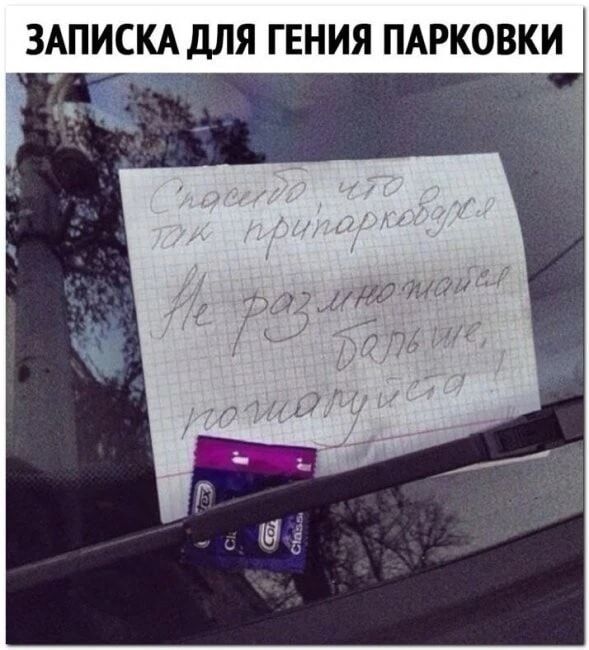 ЗАПИСКА ДЛЯ ГЕНИЯ ПАРКОВКИ
Спасибо, что
так припарковался
Не размножайся
больше,
пожалуйста!
Contex
Classic